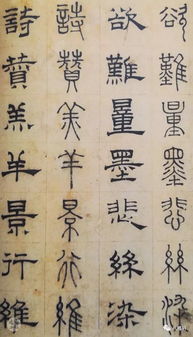 欲難量墨悲絲染
欲難量墨悲絲染
詩贊羔羊景行維
詩贊羔羊景行維